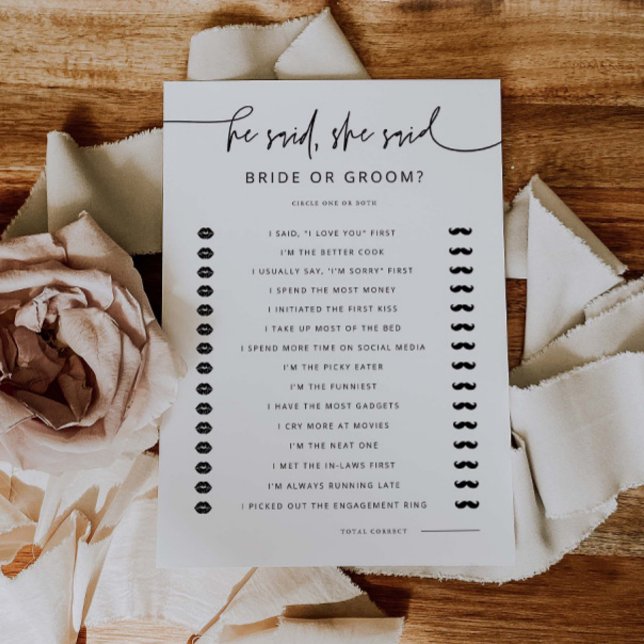 he said, she said
BRIDE OR GROOM?
CIRCLE ONE OR BOTH
I SAID, "I LOVE YOU" FIRST
I'M THE BETTER COOK
I USUALLY SAY, "I'M SORRY" FIRST
I SPEND THE MOST MONEY
I INITIATED THE FIRST KISS
I TAKE UP MOST OF THE BED
I SPEND MORE TIME ON SOCIAL MEDIA
I'M THE PICKY EATER
I'M THE FUNNIEST
I HAVE THE MOST GADGETS
I CRY MORE AT MOVIES
I'M THE NEAT ONE
I MET THE IN-LAWS FIRST
I'M ALWAYS RUNNING LATE
I PICKED OUT THE ENGAGEMENT RING
TOTAL CORRECT